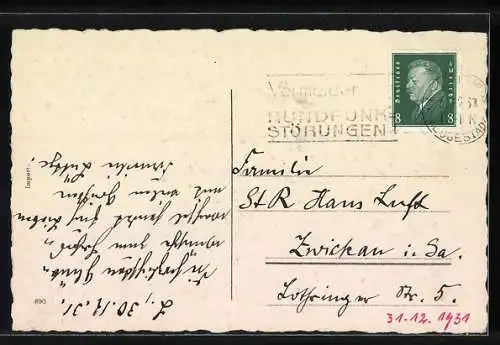 Vermeidet
RUNDFUNK
STÖRUNGEN
Deutsches Reich
8 8
Familie
StR Hans Luft
Zwickau i. Sa.
Lothringer Str. 5.
31.12.1931
L., 30.12.31.
Die herzlichsten Glück-
wünsche zum
wechsel sendet
mit vielen Grüßen
Familie
Import.
690